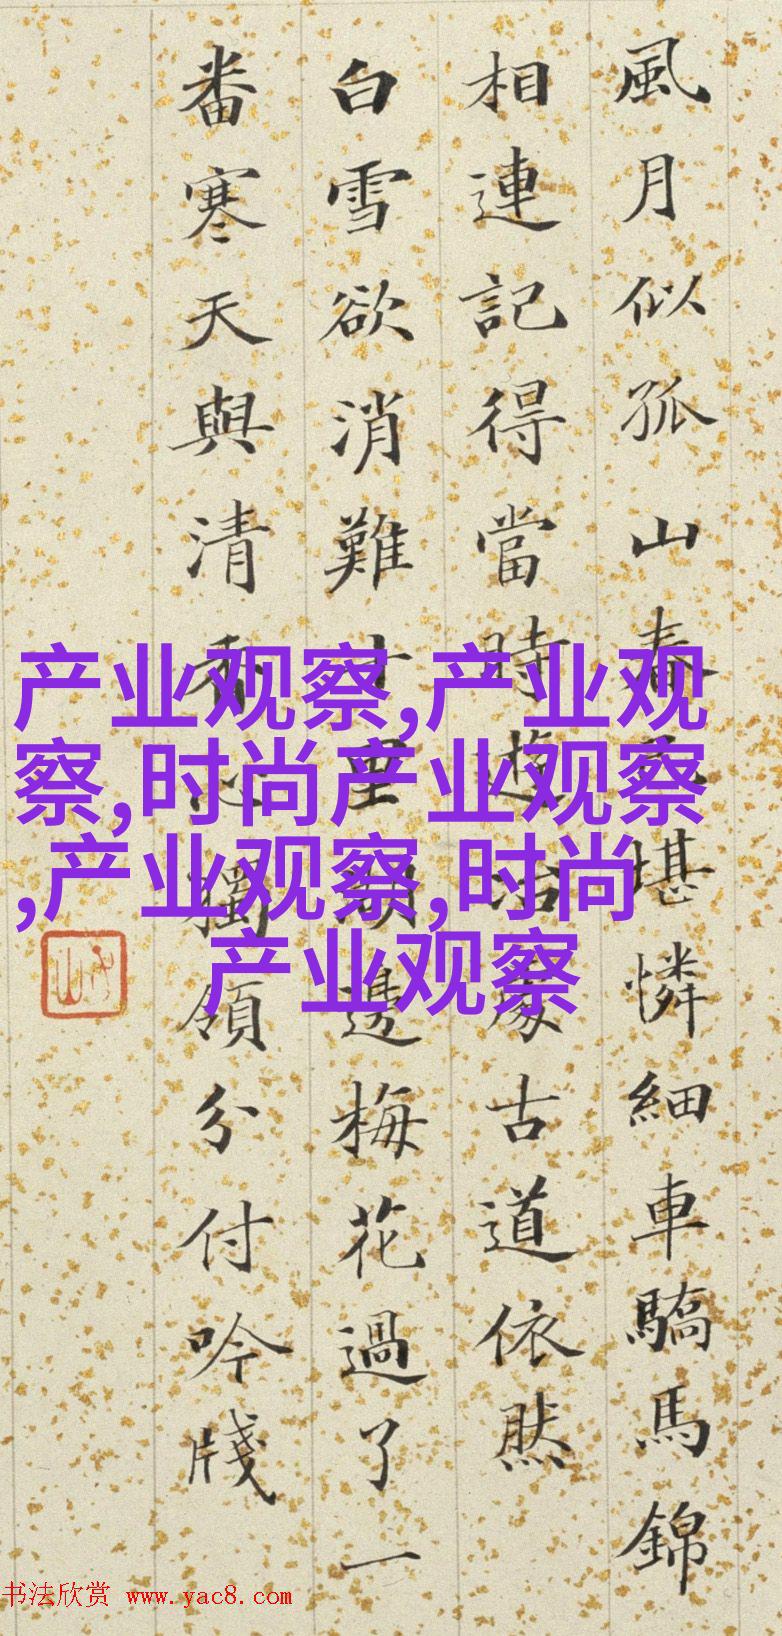 風月似孤山春堪憐細車驕馬錦
相連記得當時遊冶處古道依然
白雪欲消難十里湖邊梅花過了一
番寒天與清香心獨領分付吟牋
产业观察,产业观
察,时尚产业观察
,产业观察,时尚
产业观察
书法欣赏 www.yac8.com